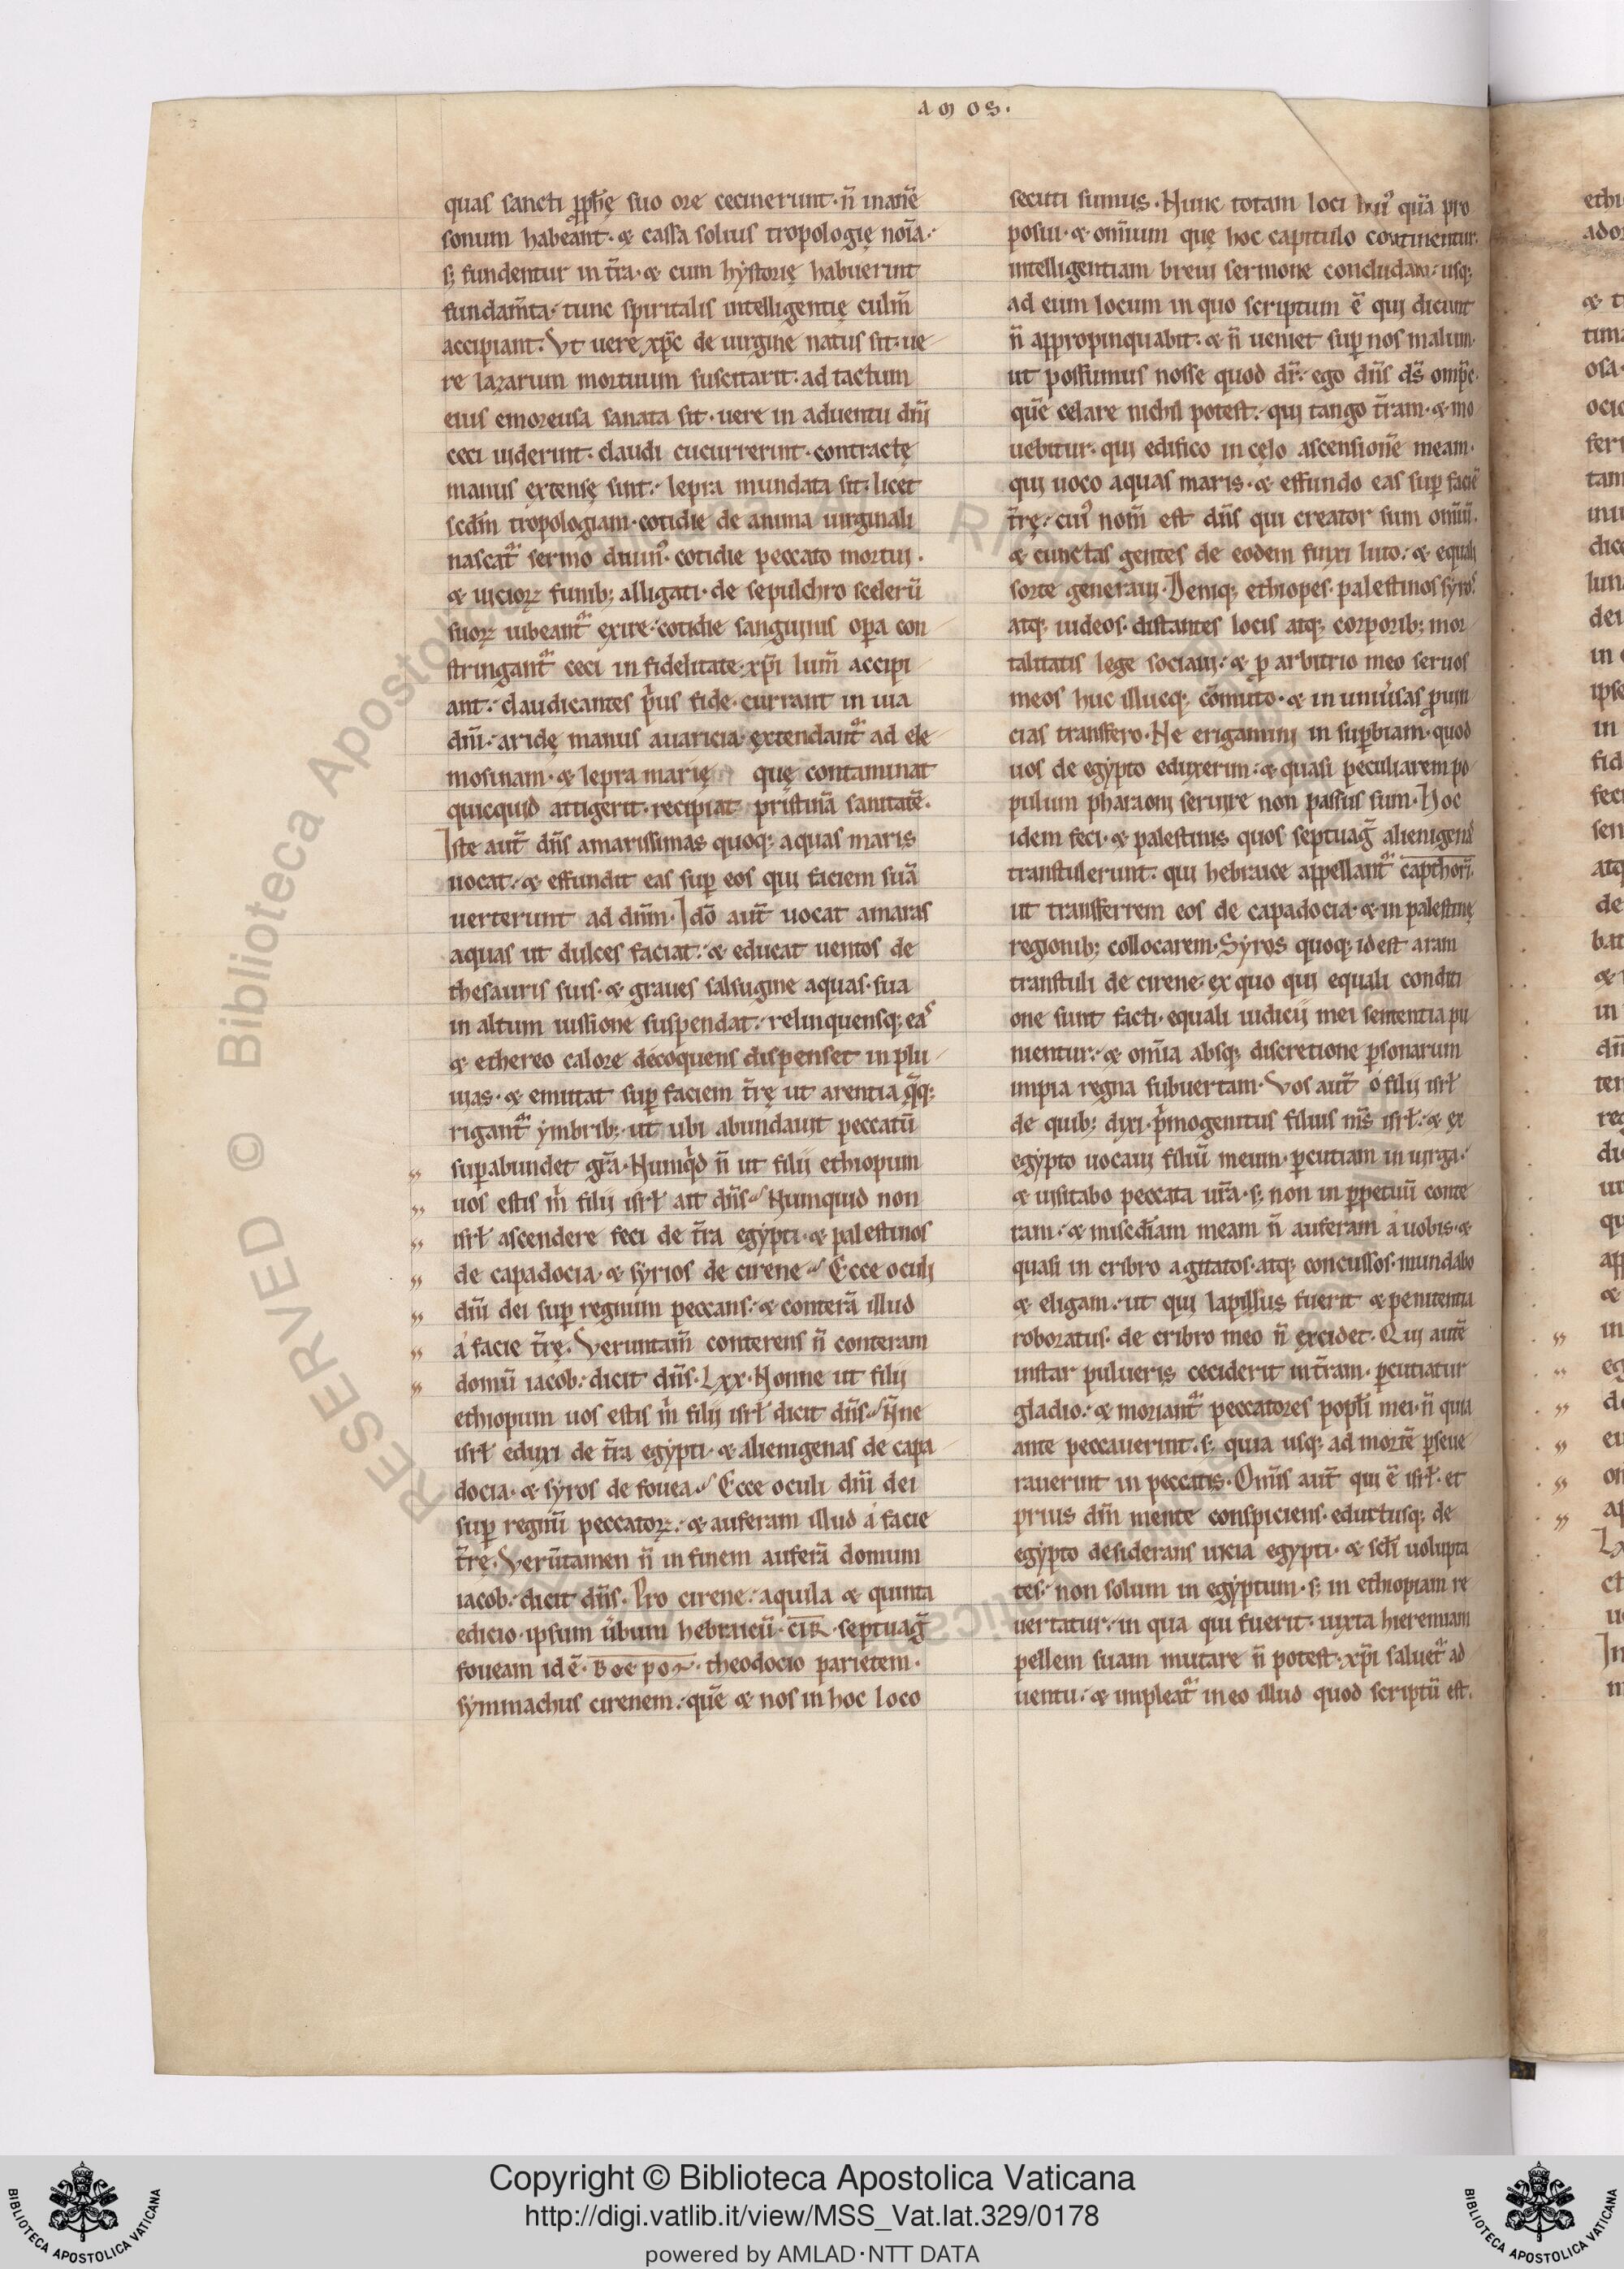 AMOS.
quas sancti ꝓph̃ę suo ore cecinerunt· ñ inanẽ
sonum habeant· & cassa solius tropologię noĩa·
s; fundentur in t̃ra· & cum hẏstorię habuerint
fundam̃ta· tunc spiritalis intelligentię culm̃
accipiant. Vt uere xp̃c de uirgine natus sit· ue
re lazarum mortuum suscitarit· ad tactum
eius emoreusa sanata sit· uere in aduentu dñi
ceci uiderint· claudi cucurrerint· contractę
manus extensę sint· lepra mundata sit· licet
scd̃m tropologiam· cotidie de anima uirginali
nascat᷑ sermo diuin᷒· cotidie peccato mortui·
& uicioꝝ funib; alligati· de sepulchro scelerũ
suoꝝ iubeant᷑ exire· cotidie sanguinis oꝑa con
stringant᷑ ceci in fidelitate· xp̃i lum̃ accipi
ant· claudicantes p̃us fide· currant in uia
dñi· aridę manus auaricia· extendant᷑ ad ele
mosinam· & lepra marię quę contaminat
quicquid attigerit· recipiat pristinã sanitatẽ.
Iste aut̃ dñs amarissimas quoq; aquas maris
uocat· & effundit eas suꝑ eos qui faciem suã
uerterunt ad dñm· Idõ aut̃ uocat amaras
aquas ut dulces faciat· & educat uentos de
thesauris suis· & graues salsugine aquas· sua
in altum iussione suspendat· relinquensq; eas
& ethereo calore decoquens dispenset in plu
uias· & emittat suꝑ faciem t̃rę ut arentia q̃q;
rigant᷑ ẏmbrib;· ut ubi abundauit peccatũ
suꝑabundet gr̃a· Numq̃d ñ ut filii ethiopum
uos estis m̃ filii isrł ait dñs Numquid non
isrł ascendere feci de t̃ra egẏpti· & palestinos
de capadocia· & sẏrios de cirene Ecce oculi
dñi dei suꝑ regnum peccans· & conterã illud
a facie t̃rę· Verumtam̃ conterens ñ conteram
domũ iacob· dicit dñs· Lxx· Nonne ut filii
ethiopum uos estis m̃ filii isrł dicit dñs Ñne
isrł eduxi de t̃ra egẏpti· & alienigenas de capa
docia· & sẏros de fouea Ecce oculi dñi dei
suꝑ regnũ peccatoꝝ· & auferam illud a facie
t̃rę· Verũtamen ñ in finem auferã domum
iacob· dicit dñs. Pro cirene· aquila & quinta
edicio· ipsum ũbum hebraicũ· CIR· septuag̃
foueam id ẽ· theodocio parietem·
sẏmmachus cirenem· quẽ & nos in hoc loco
secuti sumus· Nunc totam loci hui᷒ quã pro
posui· & omnium quę hoc capitulo continentur·
intelligentiam breui sermone concludam· usq;
ad eum locum in quo scriptum ẽ qui dicunt
ñ appropinquabit· & ñ ueniet suꝑ nos malum·
ut possumus nosse quod dr̃· ego dñs ds̃ omp̃c·
quẽ celare nichil potest· qui tango t̃ram· & mo
uebitur· qui edifico in cęlo ascensionẽ meam·
qui uoco aquas maris· & effundo eas suꝑ faciẽ
t̃rę· cui᷒ nom̃ est dñs qui creator sum omĩũ.
& cunctas gentes de eodem finxi luto· & equali
sorte generaui· Deniq; ethiopes· palestinos sẏros
atq; iudeos· distantes locis atq; corporib; mor
talitatis lege sociaui· & ꝑ arbitrio meo seruos
meos huc illucq; cõmuto· & in uniũsas ꝓuin
cias transfero· Ne erigamini in suꝑbiam· quod
uos de egẏpto eduxerim· & quasi peculiarem po
pulum pharaoni seruire non passus sum· Hoc
idem feci· & palestinis quos septuag̃ alienigenas
transtulerunt· qui hebraice appellant᷑ capthorĩ·
ut transferrem eos de capadocia· & in palestinę
regionib; collocarem· Sẏros quoq; id est aram
transtuli de cirene· ex quo qui equali conditi
one sunt facti· equali iudicii mei sententia pu
nientur· & omĩa absq; discretione ꝑsonarum
impia regna subuertam· Vos aut̃ o filii isrł
de quib; dixi· p̃mogenitus filius ms̃ isrł· & ex
egẏpto uocaui filiũ meum· ꝑcutiam in uirga·
& uisitabo peccata ur̃a· s; non in ꝑpetuũ conte
ram· & misc̃diam meam ñ auferam a uobis· &
quasi in cribro agitatos· atq; concussos· mundabo
& eligam· ut qui lapillus fuerit & penitentia
roboratus· de cribro meo ñ excidet· Qui autẽ
instar pulueris ceciderit in t̃ram· ꝑcutiatur
gladio· & moriant᷑ peccatores popłi mei· ñ quia
ante peccauerint· s; quia usq; ad mortẽ ꝑseue
rauerint in peccatis· Omĩs aut̃ qui ẽ isrł· et
prius dñm mente conspiciens· eductusq; de
egẏpto desiderans uicia egẏpti· & scłi uolupta
tes· non solum in egẏptum· s; in ethiopiam re
uertatur· in qua qui fuerit· iuxta hieremiam
pellem suam mutare ñ potest· xp̃i saluet᷑ ad
uentu· & impleat᷑ in eo illud quod scriptũ est.
Copyright © Biblioteca Apostolica Vaticana
http://digi.vatlib.it/view/MSS_Vat.lat.329/0178
powered by AMLAD·NTT DATA
BIBLIOTECA APOSTOLICA VATICANA
BIBLIOTECA APOSTOLICA VATICANA